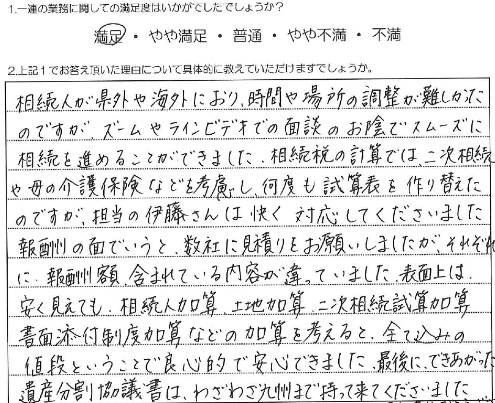 1.一連の業務に関しての満足度はいかがでしたでしょうか?
満足・やや満足・普通・やや不満・不満
2.上記1でお答え頂いた理由について具体的に教えていただけますでしょうか。
相続人が県外や海外におり、時間や場所の調整が難しかった
のですが、ズームやラインビデオでの面談のお陰でスムーズに
相続を進めることができました。相続税の計算では、二次相続
や母の介護保険などを考慮し、何度も試算表を作り替えた
のですが、担当の伊藤さんは快く対応してくださいました
報酬の面でいうと、数社に見積りをお願いしましたが、それぞれ
に、報酬額含まれている内容が違っていました。表面上は
安く見えても、相続人加算、土地加算、二次相続試算加算
書面添付制度加算などの加算を考えると、全て込みの
値段ということで良心的で安心できました。最後に、できあがった
遺産分割協議書は、わざわざ九州まで持って来てくださいました